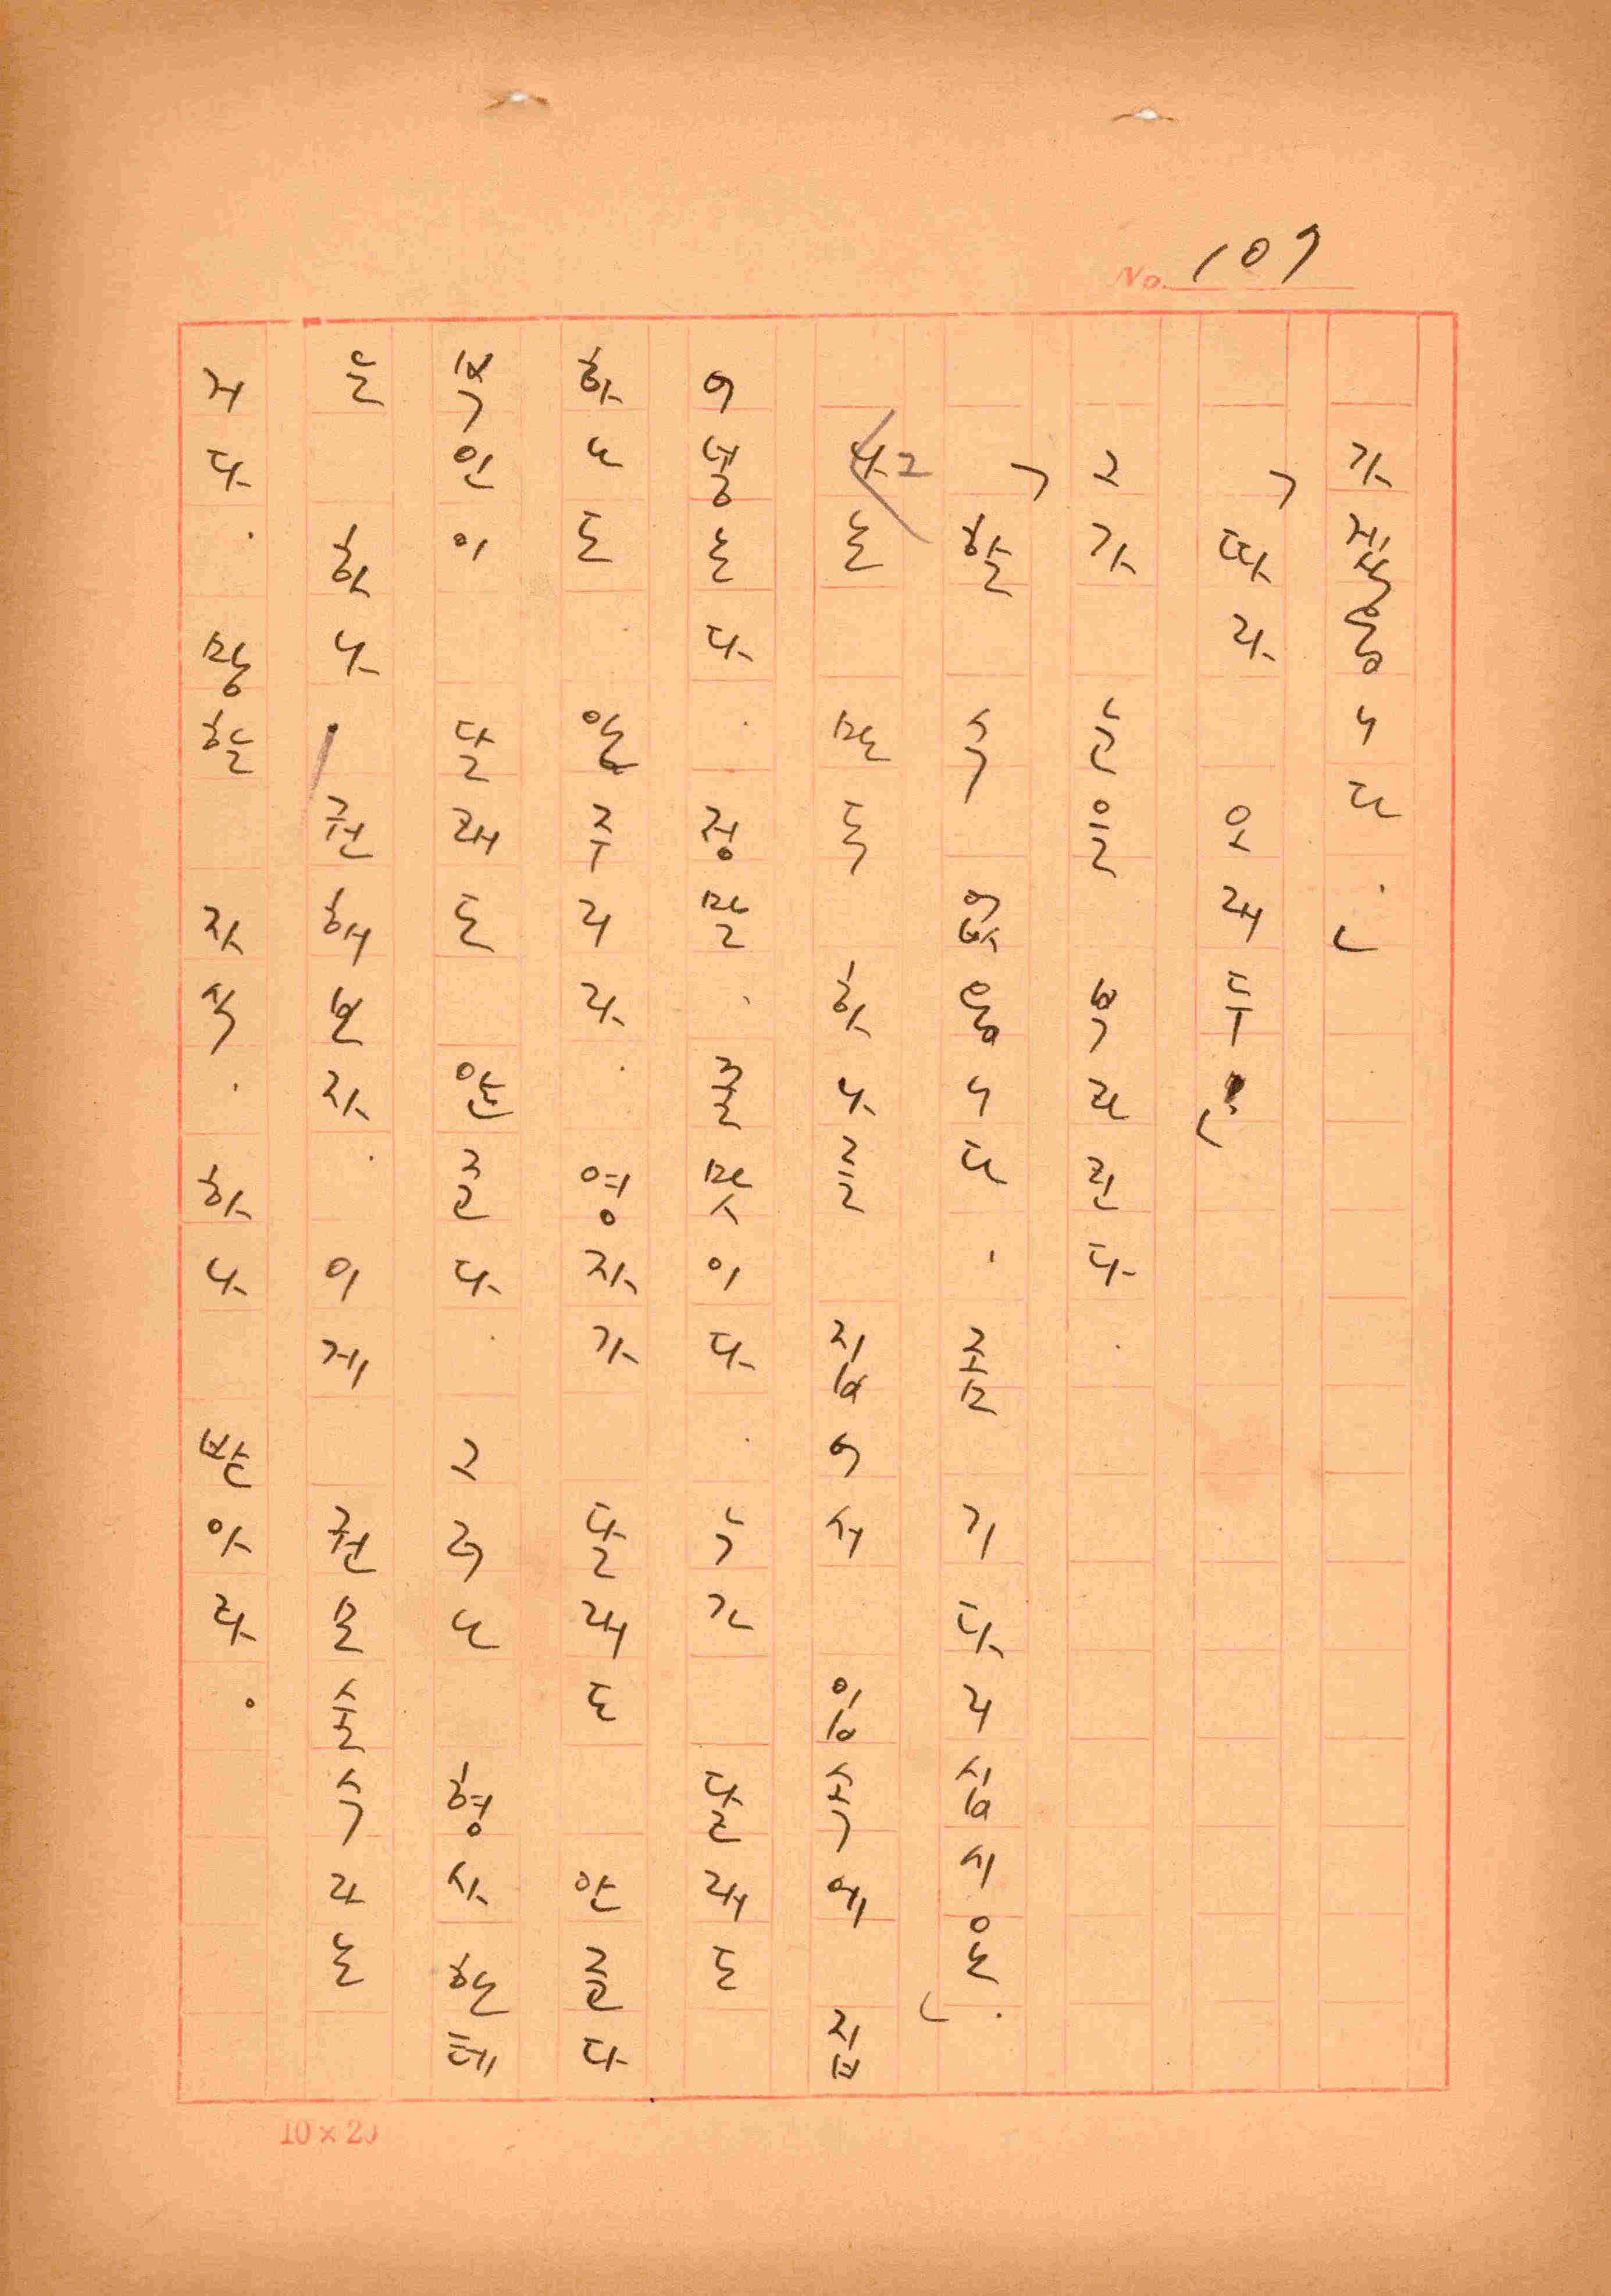 No. 109
가겠읍니다.」
「따라 오래두!」
그가 눈을 부라린다.
「할 수 없읍니다. 좀 기다리십시온.」
그는 만두 하나를 집어서 입속에 집
어넣는다. 정말, 꿀맛이다. 누가 달래도
하나도 않주리라. 영자가 달래도 안준다
부인이 달래도 않준다. 그러나 형사한테
는 하나 권해보자. 이게 권모술수라는
거다. 망한 자식. 하나 받아라.
10×20